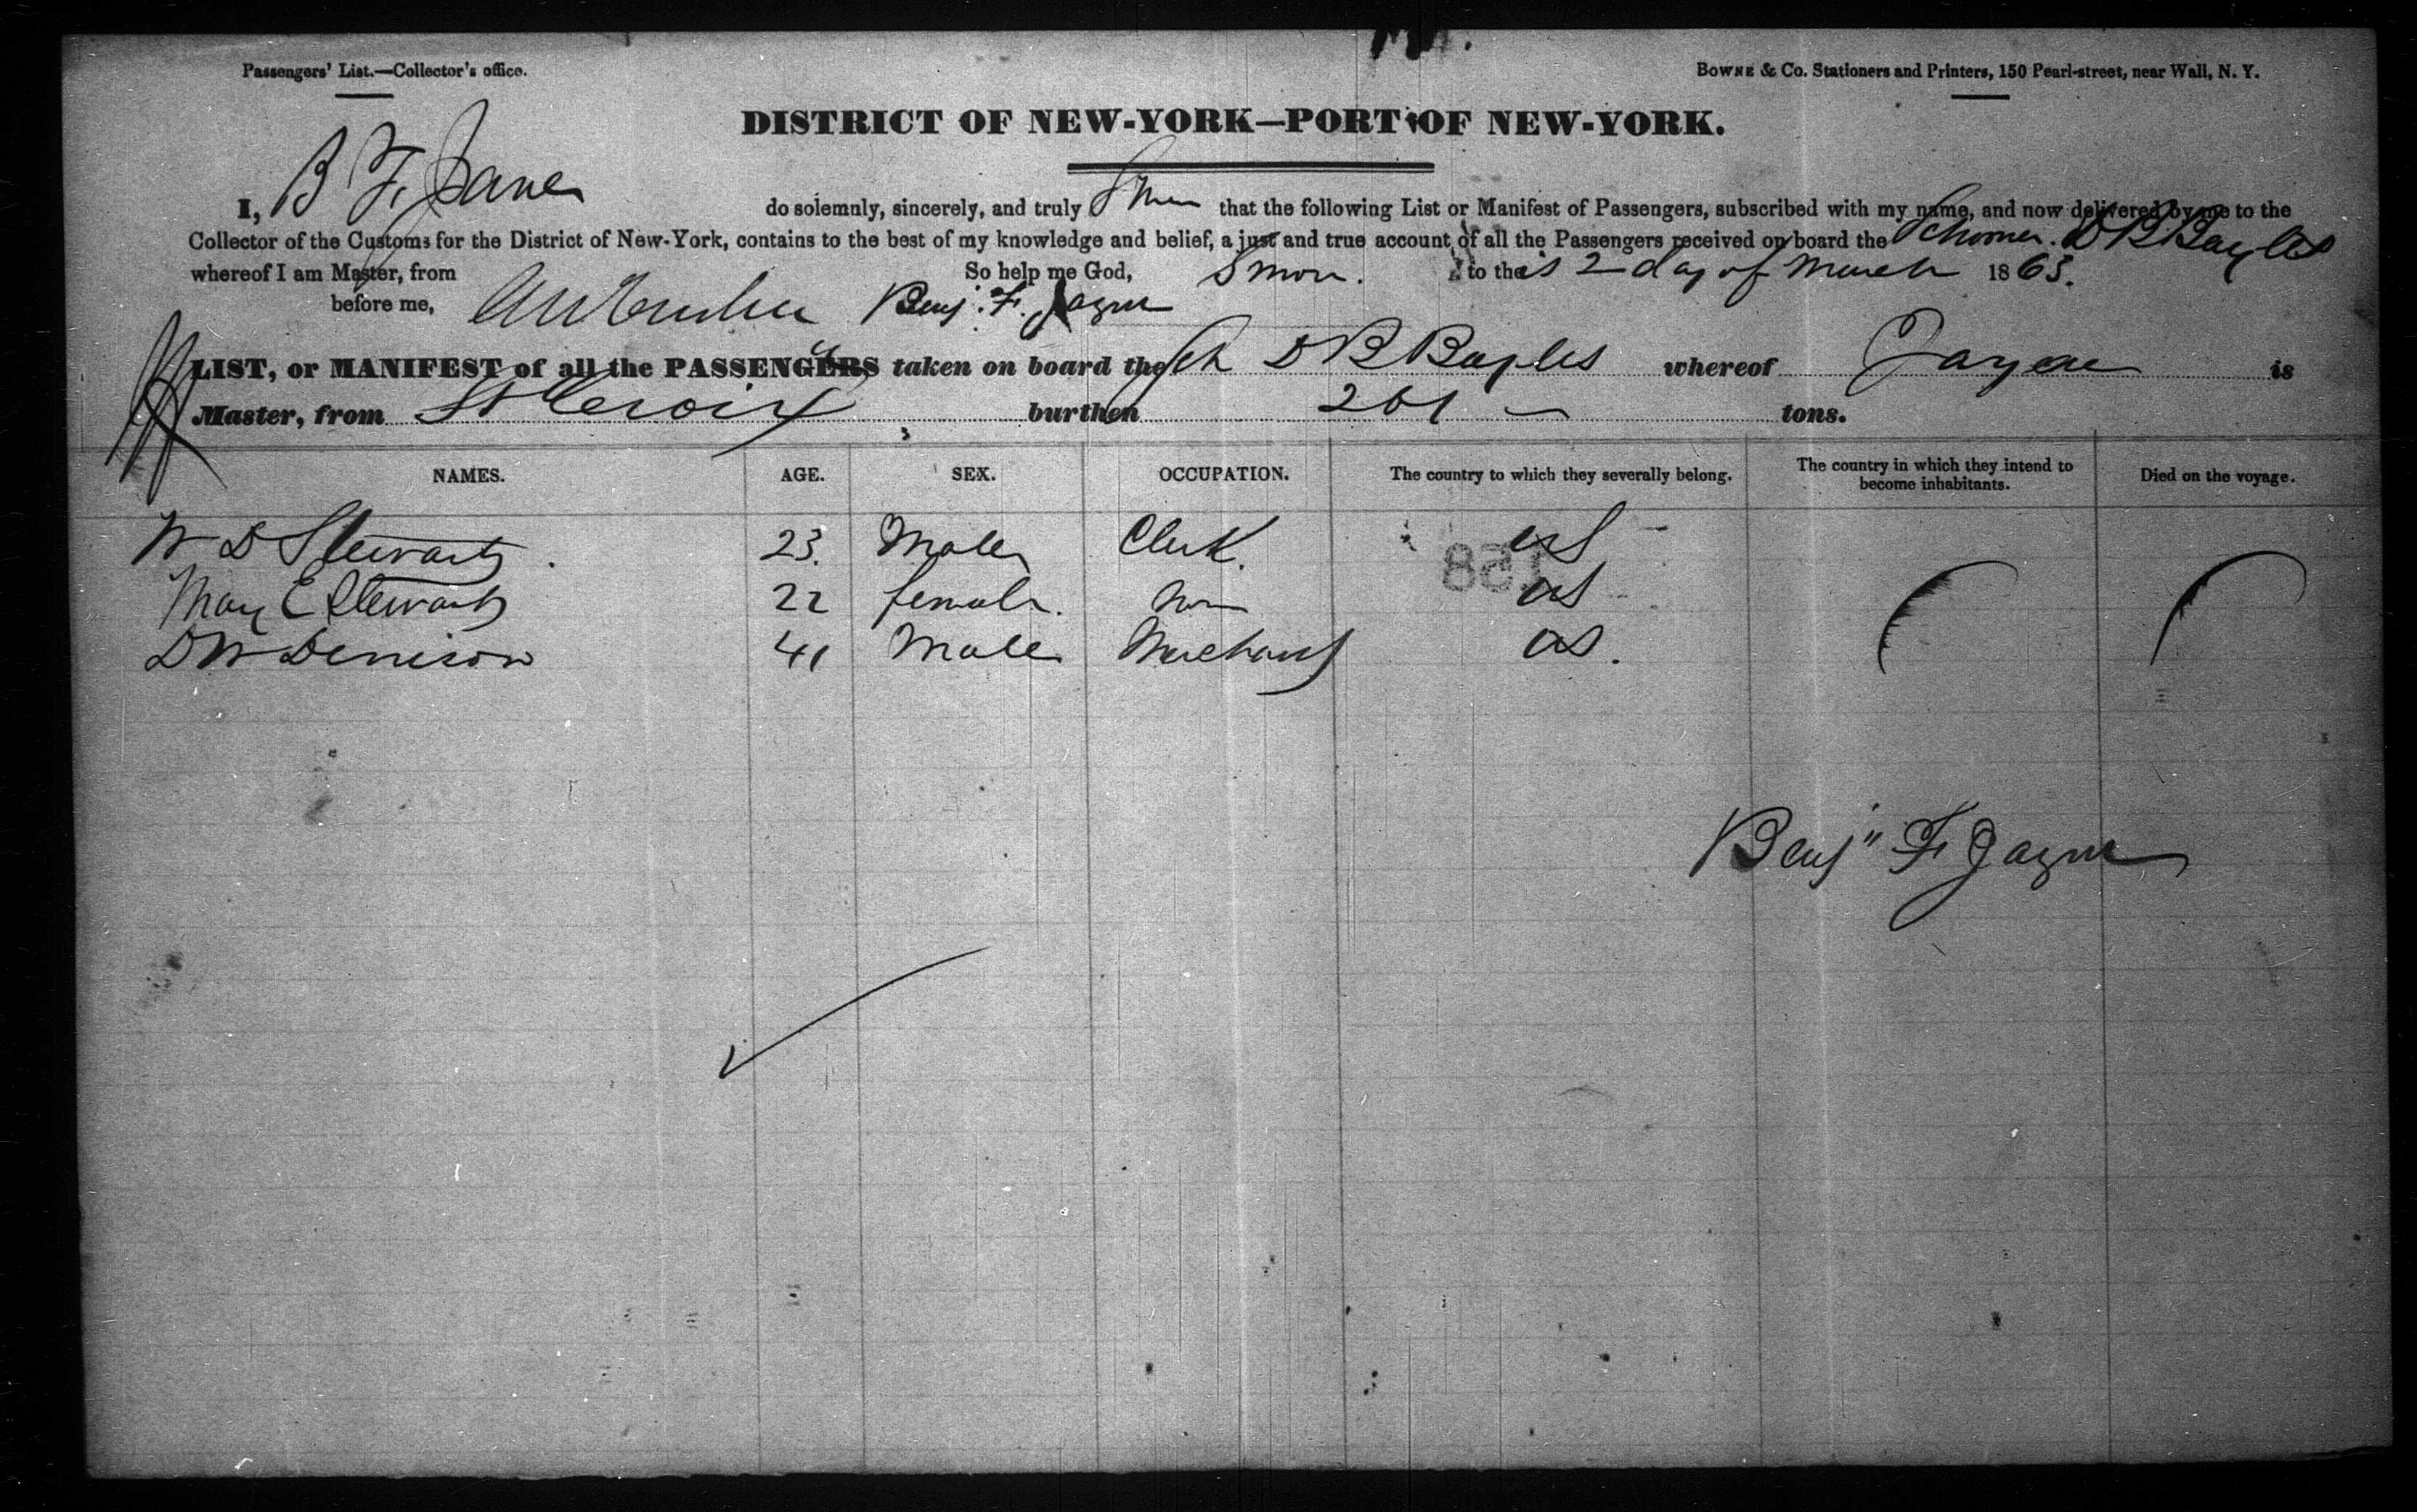 Passengers' List.—Collector's office.
BOWNE & Co. Stationers and Printers, 150 Pearl-street, near Wall, N. Y.
DISTRICT OF NEW-YORK—PORT OF NEW-YORK.
I, B F Jayne do solemnly, sincerely, and truly Swear that the following List or Manifest of Passengers, subscribed with my name, and now delivered by me to the
Collector of the Customs for the District of New-York, contains to the best of my knowledge and belief, a just and true account of all the Passengers received on board the Schooner D B Bayles
whereof I am Master, from So help me God, Sworn to this 2 day of March 1863.
before me, Benj. F. Jayne
LIST, or MANIFEST of all the PASSENGERS taken on board the Sch D B Bayles whereof Jayne is
Master, from St Croix burthen 261 tons.
NAMES. AGE. SEX. OCCUPATION. The country to which they severally belong. The country in which they intend to become inhabitants. Died on the voyage.
W D Stewart 23. Male Clerk. US
Mary E Stewart 22 female. None US
D W Denison 41 Male Merchant US.
158
Benj" F Jayne